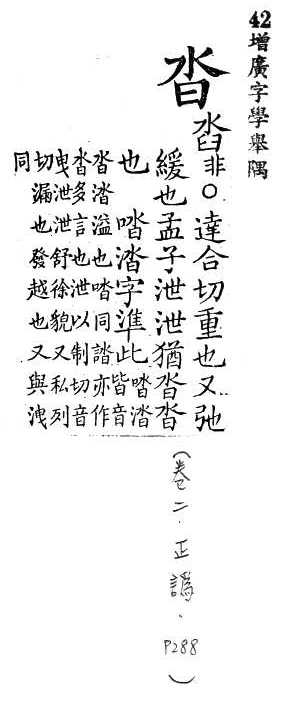 42增廣字學舉隅
沓
非○達合切重也又弛
緩也孟子泄泄猶沓沓
也 涾字準此 涾
皆音
沓涾溢也同誻亦作
沓多言也泄以制切音
曳泄泄舒徐貌又私列
切漏也發越也又與洩
同
（卷二．正譌．P288）